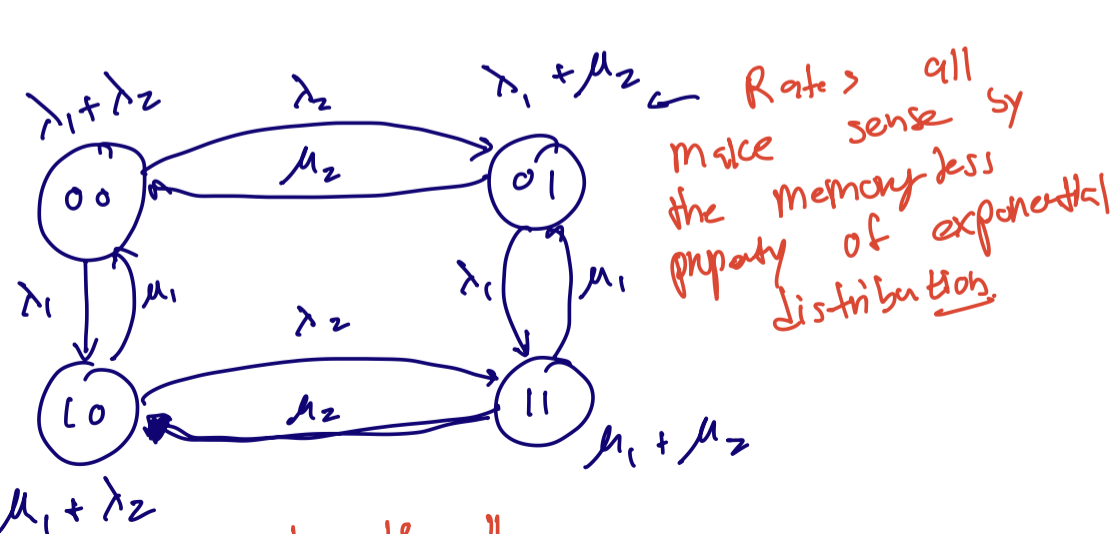 λ1 + λ2
λ2
λ1 + μ2
Rates all
make sense by
the memoryless
property of exponential
distribution.
μ2
00
01
λ1
μ1
λ1
μ1
λ2
10
μ2
11
μ1 + μ2
μ1 + λ2